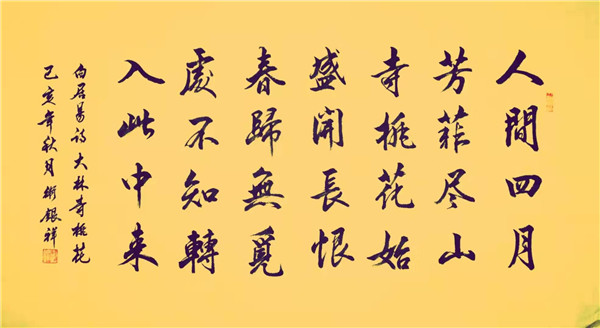 人間四月
芳菲尽山
寺桃花始
盛開長恨
春歸無覓
處不知轉
入此中来
白居易诗大林寺桃花
己亥年秋月銀祥